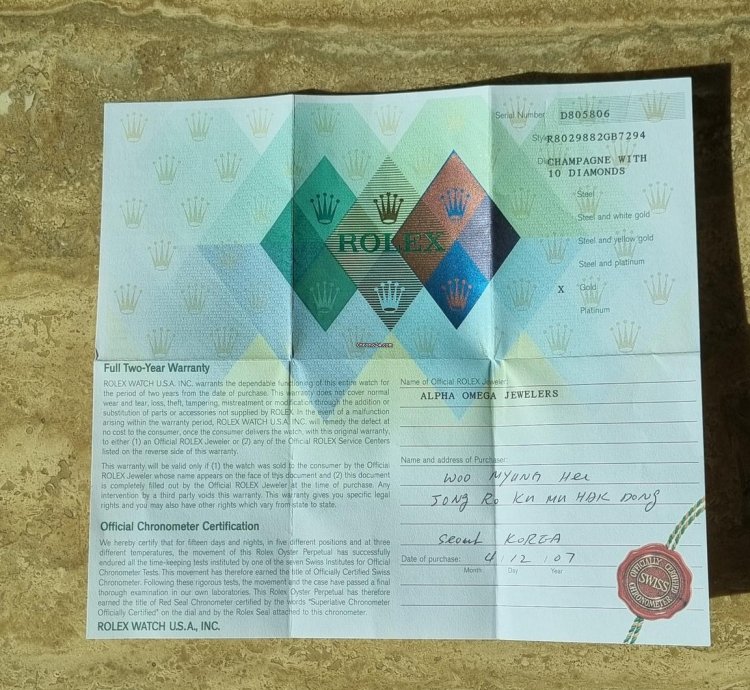 Serial Number: D805806
Style R8029882GB7294
CHAMPAGNE WITH
10 DIAMONDS
Steel
Steel and white gold
Steel and yellow gold
Steel and platinum
X Gold
Platinum
ROLEX
Chrono24.com
Full Two-Year Warranty
ROLEX WATCH U.S.A. INC. warrants the dependable functioning of this entire watch for
the period of two years from the date of purchase. This warranty does not cover normal
wear and tear, loss, theft, tampering, mistreatment or modification through the addition or
substitution of parts or accessories not supplied by ROLEX. In the event of a malfunction
arising within the warranty period, ROLEX WATCH U.S.A. INC. will remedy the defect at
no cost to the consumer, once the consumer delivers the watch, with this original warranty,
to either (1) an Official ROLEX Jeweler or (2) any of the Official ROLEX Service Centers
listed on the reverse side of this warranty.
This warranty will be valid only if (1) the watch was sold to the consumer by the Official
ROLEX Jeweler whose name appears on the face of this document and (2) this document
is completely filled out by the Official ROLEX Jeweler at the time of purchase. Any
intervention by a third party voids this warranty. This warranty gives you specific legal
rights and you may also have other rights which vary from state to state.
Official Chronometer Certification
We hereby certify that for fifteen days and nights, in five different positions and at three
different temperatures, the movement of this Rolex Oyster Perpetual has successfully
endured all the time-keeping tests instituted by one of the seven Swiss Institutes for Official
Chronometer Tests. This movement has therefore earned the title of Officially Certified Swiss
Chronometer. Following these rigorous tests, the movement and the case have passed a final
thorough examination in our own laboratories. This Rolex Oyster Perpetual has therefore
earned the title of Red Seal Chronometer certified by the words "Superlative Chronometer
Officially Certified" on the dial and by the Rolex Seal attached to this chronometer.
ROLEX WATCH U.S.A., INC.
Name of Official ROLEX Jeweler:
ALPHA OMEGA JEWELERS
Name and address of Purchaser:
WOO MYUNG HEE
JONG RO KU MU HAK DONG
Seoul KOREA
Date of purchase: 4 12 07
Month Day Year
OFFICIALLY CERTIFIED
SWISS
CHRONOMETER